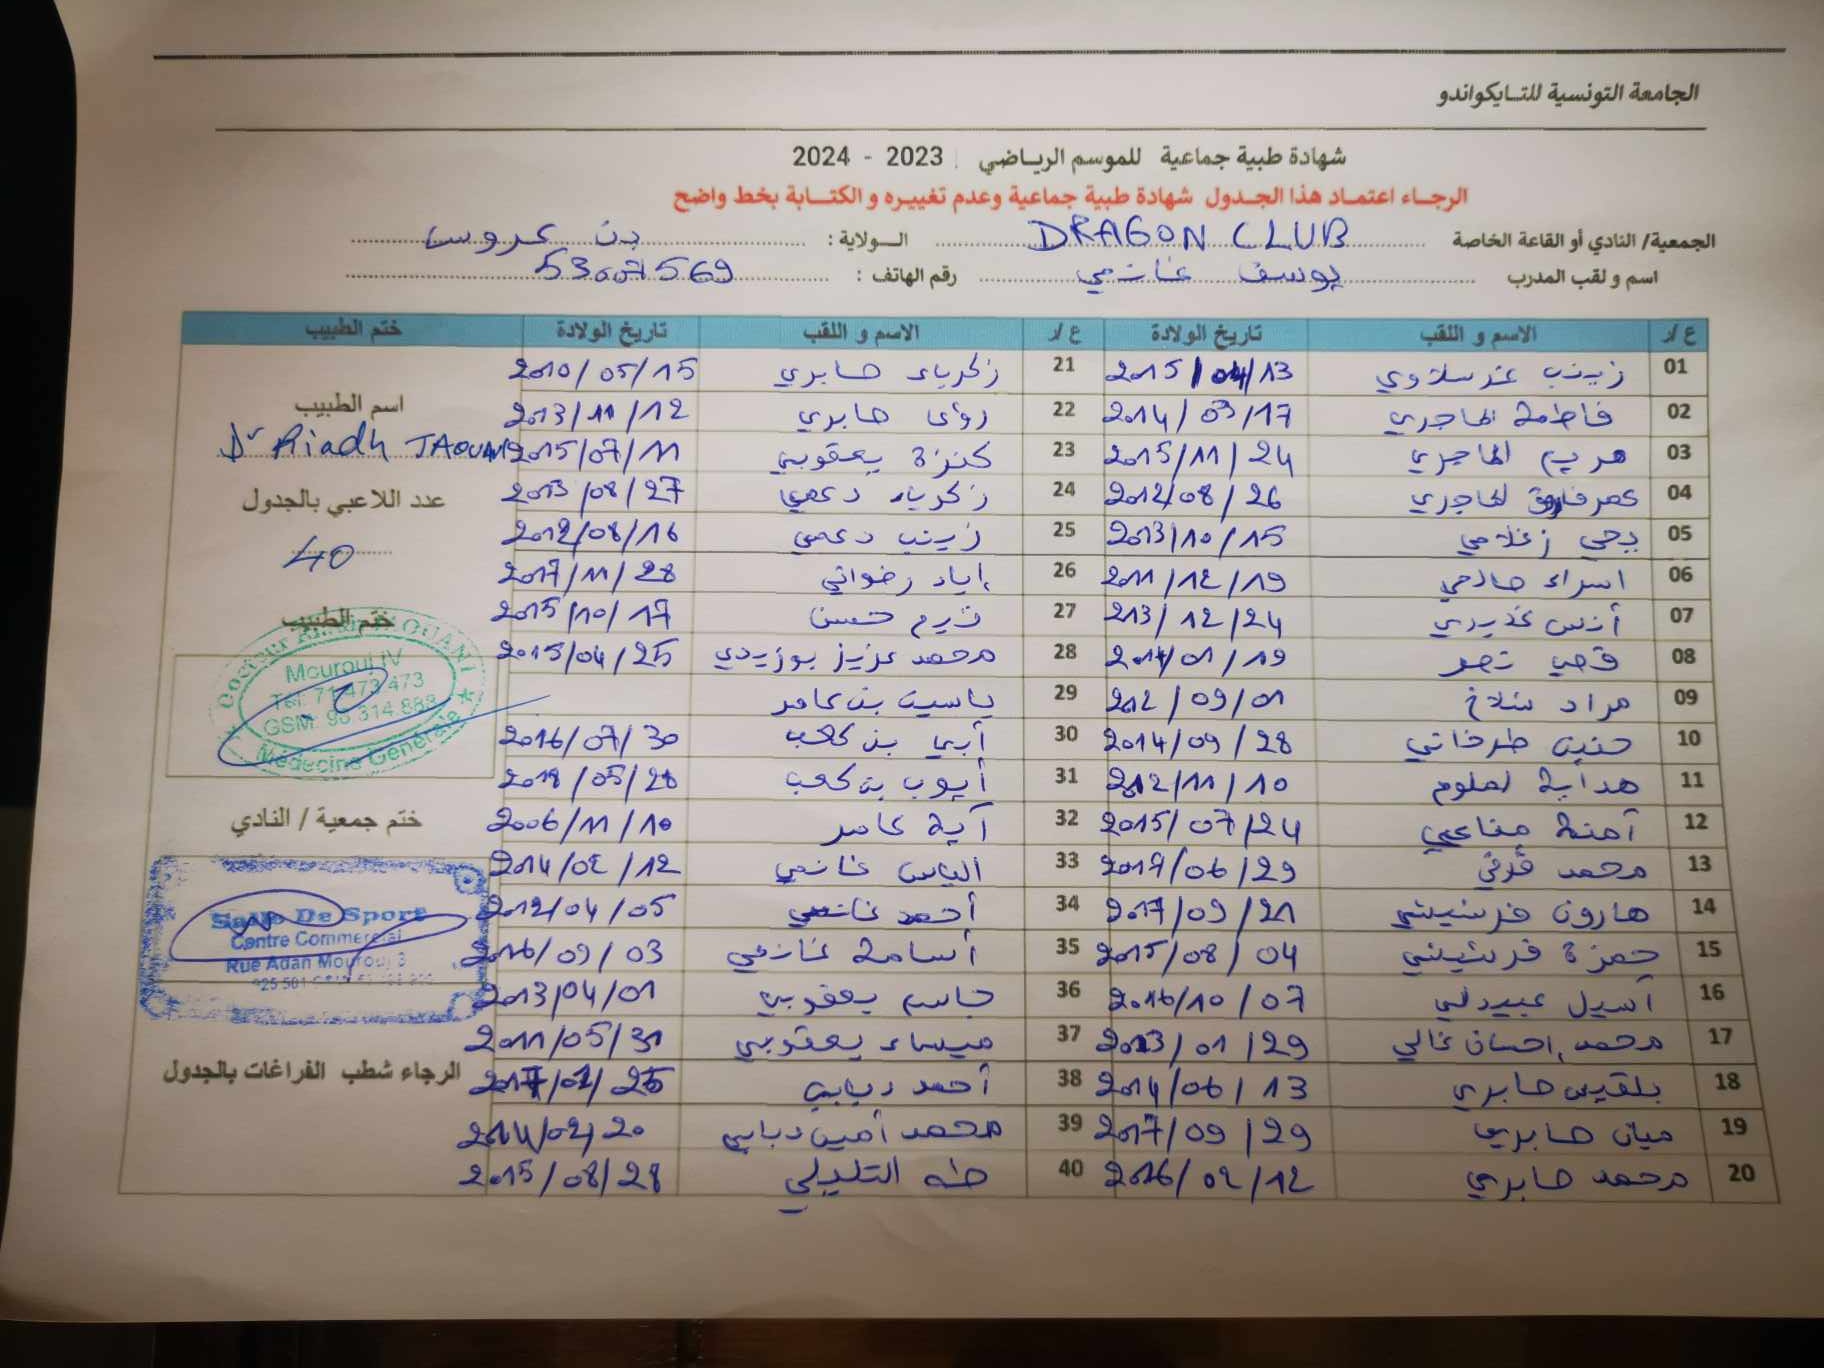 الجامعة التونسية للتـايكواندو
شهادة طبية جماعية للموسم الرياضي 2023 - 2024
الرجـاء اعتمـاد هذا الجـدول شهادة طبية جماعية وعدم تغييـره و الكتـابة بخط واضح
الجمعية/ النادي أو القاعة الخاصة DRAGON CLUB الـولاية : بن عروس
اسم و لقب المدرب يوسف غانمي رقم الهاتف : 53007569
ع/ر الاسم و اللقب تاريخ الولادة ع/ر الاسم و اللقب تاريخ الولادة ختم الطبيب
01 زينب 2015/04/13 21 زكرياء صابري 2010/05/15
02 فاطمة الهاجري 2014/03/17 22 رؤى صابري 2013/11/12
03 مريم الهاجري 2015/11/24 23 كنزة يعقوبي 2015/07/11
04 عمر فاروق الهاجري 2012/08/26 24 زكرياء دعمي 2013/08/27
05 يحي زغلامي 2013/10/15 25 زينب دعمي 2012/08/16
06 اسراء صالحي 2011/12/19 26 إياد رضواني 2017/11/28
07 أنس 213/12/24 27 2015/10/17
08 قصي نصر 2014/01/19 28 محمد عزيز بوزيدي 2015/04/25
09 مراد 212/09/01 29 ياسين بن عامر
10 حنين طرخاني 2014/09/28 30 بن كعب 2016/07/30
11 هداية لملوم 2012/11/10 31 أيوب بن كعب 2018/05/28
12 آمنة مناعي 2015/07/24 32 آية عامر 2006/11/10
13 محمد 2017/06/29 33 الياس غانمي 2014/02/12
14 هارون فرشيشي 2017/09/21 34 أحمد غانمي 2012/04/05
15 حمزة فرشيشي 2015/08/04 35 أسامة غانمي 2016/09/03
16 أسيل عبيدلي 2016/10/07 36 جاسم يعقوبي 2013/04/01
17 محمد إحسان غالي 2013/01/29 37 ميساء يعقوبي 2011/05/31
18 بلقيس صابري 2014/06/13 38 أحمد دبابي
19 ميان صابري 2017/09/29 39 محمد أمين دبابي 2014/02/20
20 محمد صابري 2016/02/12 40 طه التليلي 2015/08/28
اسم الطبيب
Dr Riadh JAOUANI
عدد اللاعبي بالجدول
40
ختم الطبيب
Mourouj IV
Tél: 71 473 473
GSM: 98 314 888
Médecine Générale
ختم جمعية / النادي
Salle De Sport
Centre Commercial
Rue Adan Mourouj 3
الرجاء شطب الفراغات بالجدول